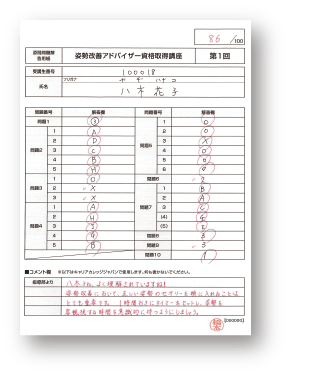 86 /100
添削問題解答用紙
姿勢改善アドバイザー資格取得講座
第1回
受講生番号 100018
フリガナ ヤギ ハナコ
氏名 八木花子
問題番号 解答欄 問題番号 解答欄
問題1 ③
問題2
1 A
2 D
3 C
4 B
5 H
問題3
1 O
2 X
3 X
問題4
1 A
2
3
4 G
5 B
問題5
1 O
2 O
3 X
4 O
5
6
問題6 2
問題7
1 B
2 A
3 C
(4)
(5) E
問題8 3
問題9 3
問題10 1
■コメント欄 ※以下はキャリアカレッジジャパンで使用します。何も書かないでください。
指導部より 八木さん、よく理解されていますね!
姿勢改善において、正しい姿勢のセオリーを頭に入れることは
とても重要です。1時間おきにタイマーをセットし、姿勢を
客観視する時間を意識的に持つようにしましょう。
[000000]